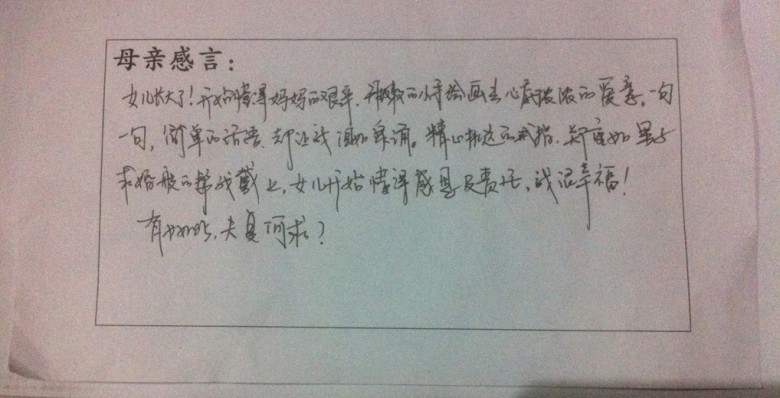 母亲感言：
女儿长大了！开始懂得妈妈的艰辛，用嫩嫩的小手绘画出心底浓浓的爱意。一句
一句，简单的话语，却让我泪如泉涌。精心挑选的戒指，郑重如王子
求婚般的帮我戴上，女儿开始懂得感恩及责任，我很幸福！
有女如此，夫复何求？